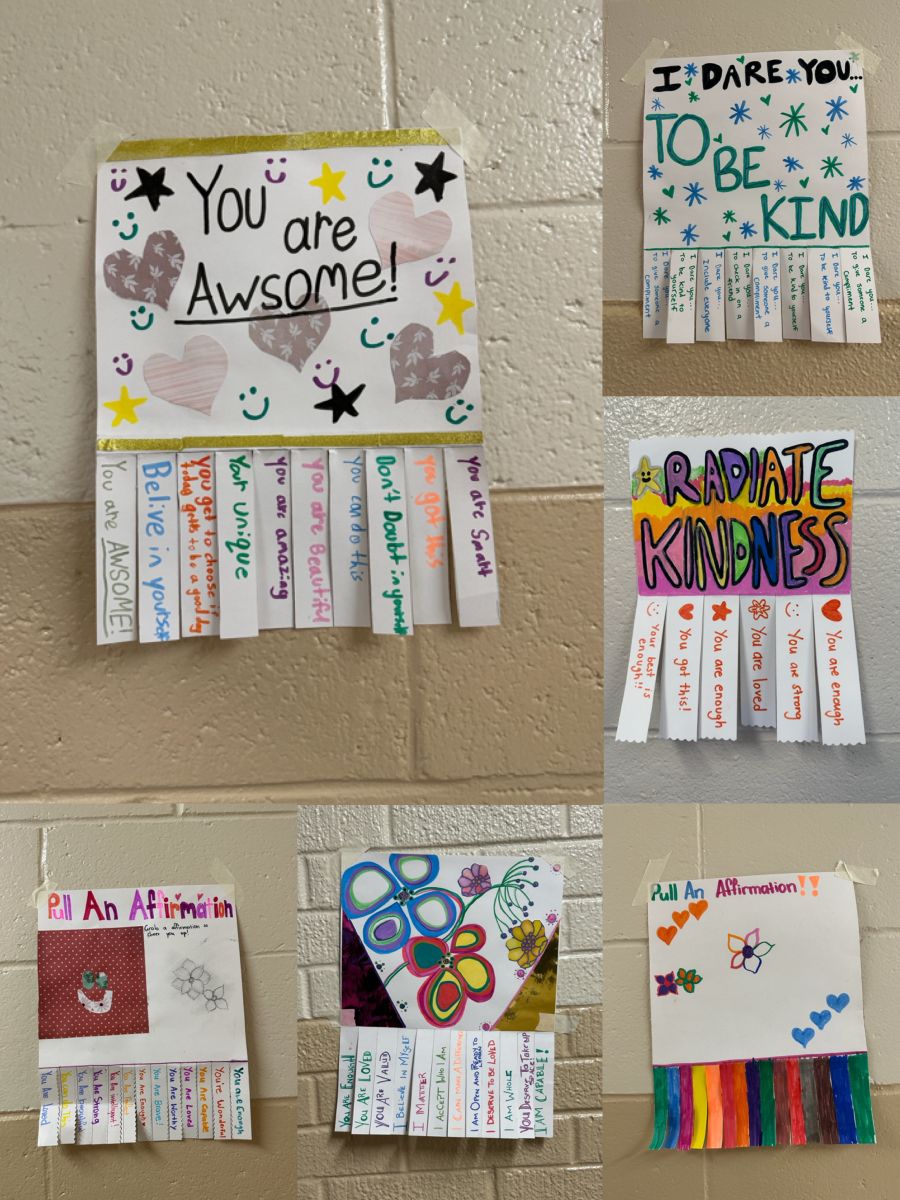 You
are
Awsome!
You are AWSOME!
Belive in yourself
You get to choose if
today gets to be a good day
Your unique
you are amazing
you are Beautiful
you can do this
Don't Doubt in yourself
you got this
You are Smart
I DARE YOU...
TO
BE
KIND
I Dare you...
To give someone a
Compliment
I Dare you...
To be kind to
yourself
I Dare you...
Include everyone
I Dare you...
To check in on a
friend
I Dare you...
To give someone a
Compliment
I Dare you...
To be kind to yourself
I Dare you...
To be kind to yourself
I Dare you...
To give someone a
Compliment
RADIATE
KINDNESS
Your best is
enough!!
You got this!
You are enough
You are loved
You are strong
You are enough
Pull An Affirmation
Grab a affirmation to
cheer you up!
You Are Loved
You Are Beautiful
You Are Strong
You Are Intelligent!
You Are Enough
You Are Brave!
You Are Worthy
You Are Loved
You Are Capable
You're Wonderful
You are Enough
YOU ARE ENOUGH
YOU ARE LOVED
YOU ARE VALID
I BELIEVE IN MYSELF
I MATTER
I ACCEPT WHO I AM
I CAN MAKE A DIFFERENCE
I AM OPEN AND READY TO
LEARN
I DESERVE TO BE LOVED
I AM WHOLE
YOU DESERVE TO TAKE UP
SPACE
I AM CAPABLE!
Pull An Affirmation!!